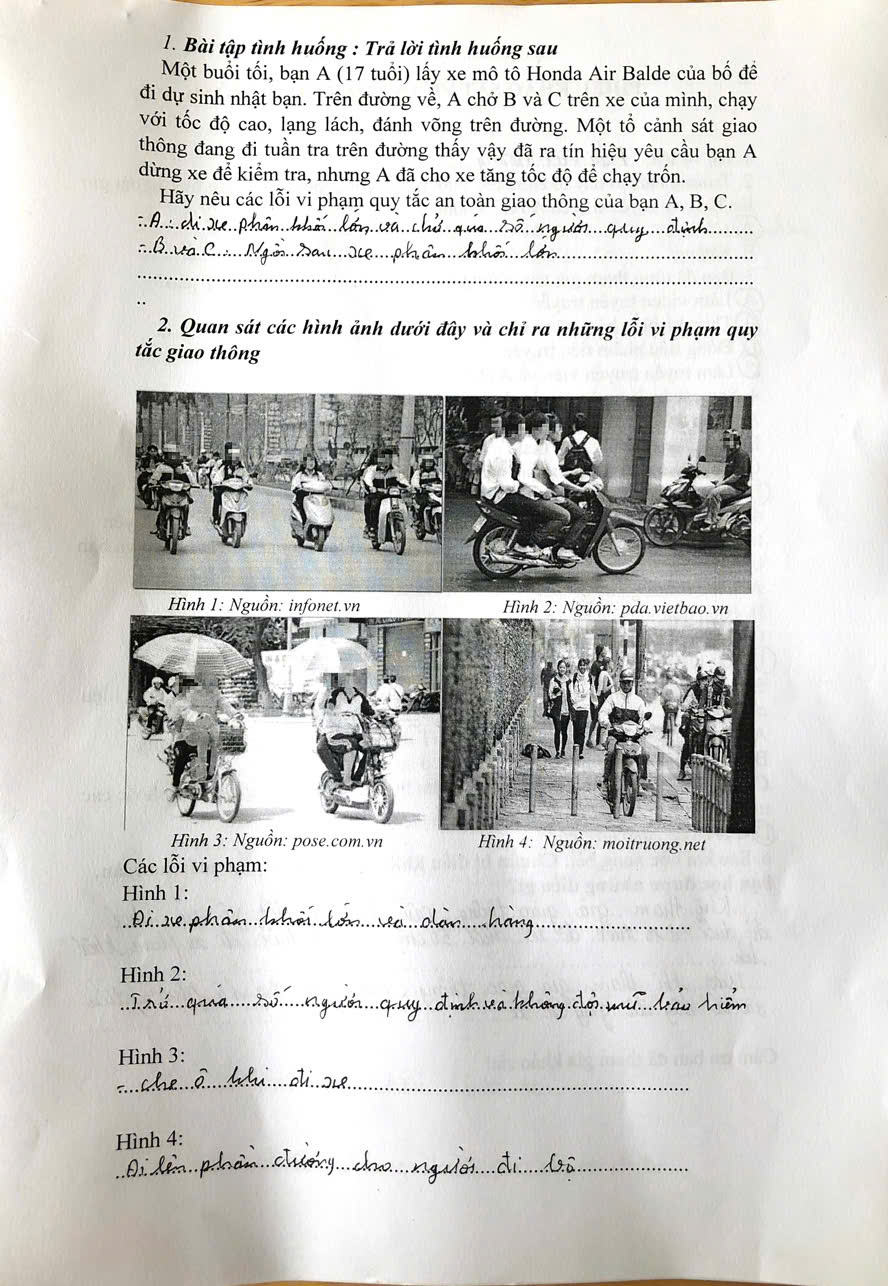 1. Bài tập tình huống : Trả lời tình huống sau
Một buổi tối, bạn A (17 tuổi) lấy xe mô tô Honda Air Balde của bố để
đi dự sinh nhật bạn. Trên đường về, A chở B và C trên xe của mình, chạy
với tốc độ cao, lạng lách, đánh võng trên đường. Một tổ cảnh sát giao
thông đang đi tuần tra trên đường thấy vậy đã ra tín hiệu yêu cầu bạn A
dừng xe để kiểm tra, nhưng A đã cho xe tăng tốc độ để chạy trốn.
Hãy nêu các lỗi vi phạm quy tắc an toàn giao thông của bạn A, B, C.
- A : đi xe phân khối lớn và chở quá số người quy định
- B và C : Ngồi sau xe phân khối lớn
2. Quan sát các hình ảnh dưới đây và chỉ ra những lỗi vi phạm quy
tắc giao thông
Hình 1: Nguồn: infonet.vn
Hình 2: Nguồn: pda.vietbao.vn
Hình 3: Nguồn: pose.com.vn
Hình 4: Nguồn: moitruong.net
Các lỗi vi phạm:
Hình 1:
Đi xe phân khối lớn và dàn hàng
Hình 2:
quá số người quy định và không đội mũ bảo hiểm
Hình 3:
- che ô khi đi xe
Hình 4:
Đi lên phần đường cho người đi bộ